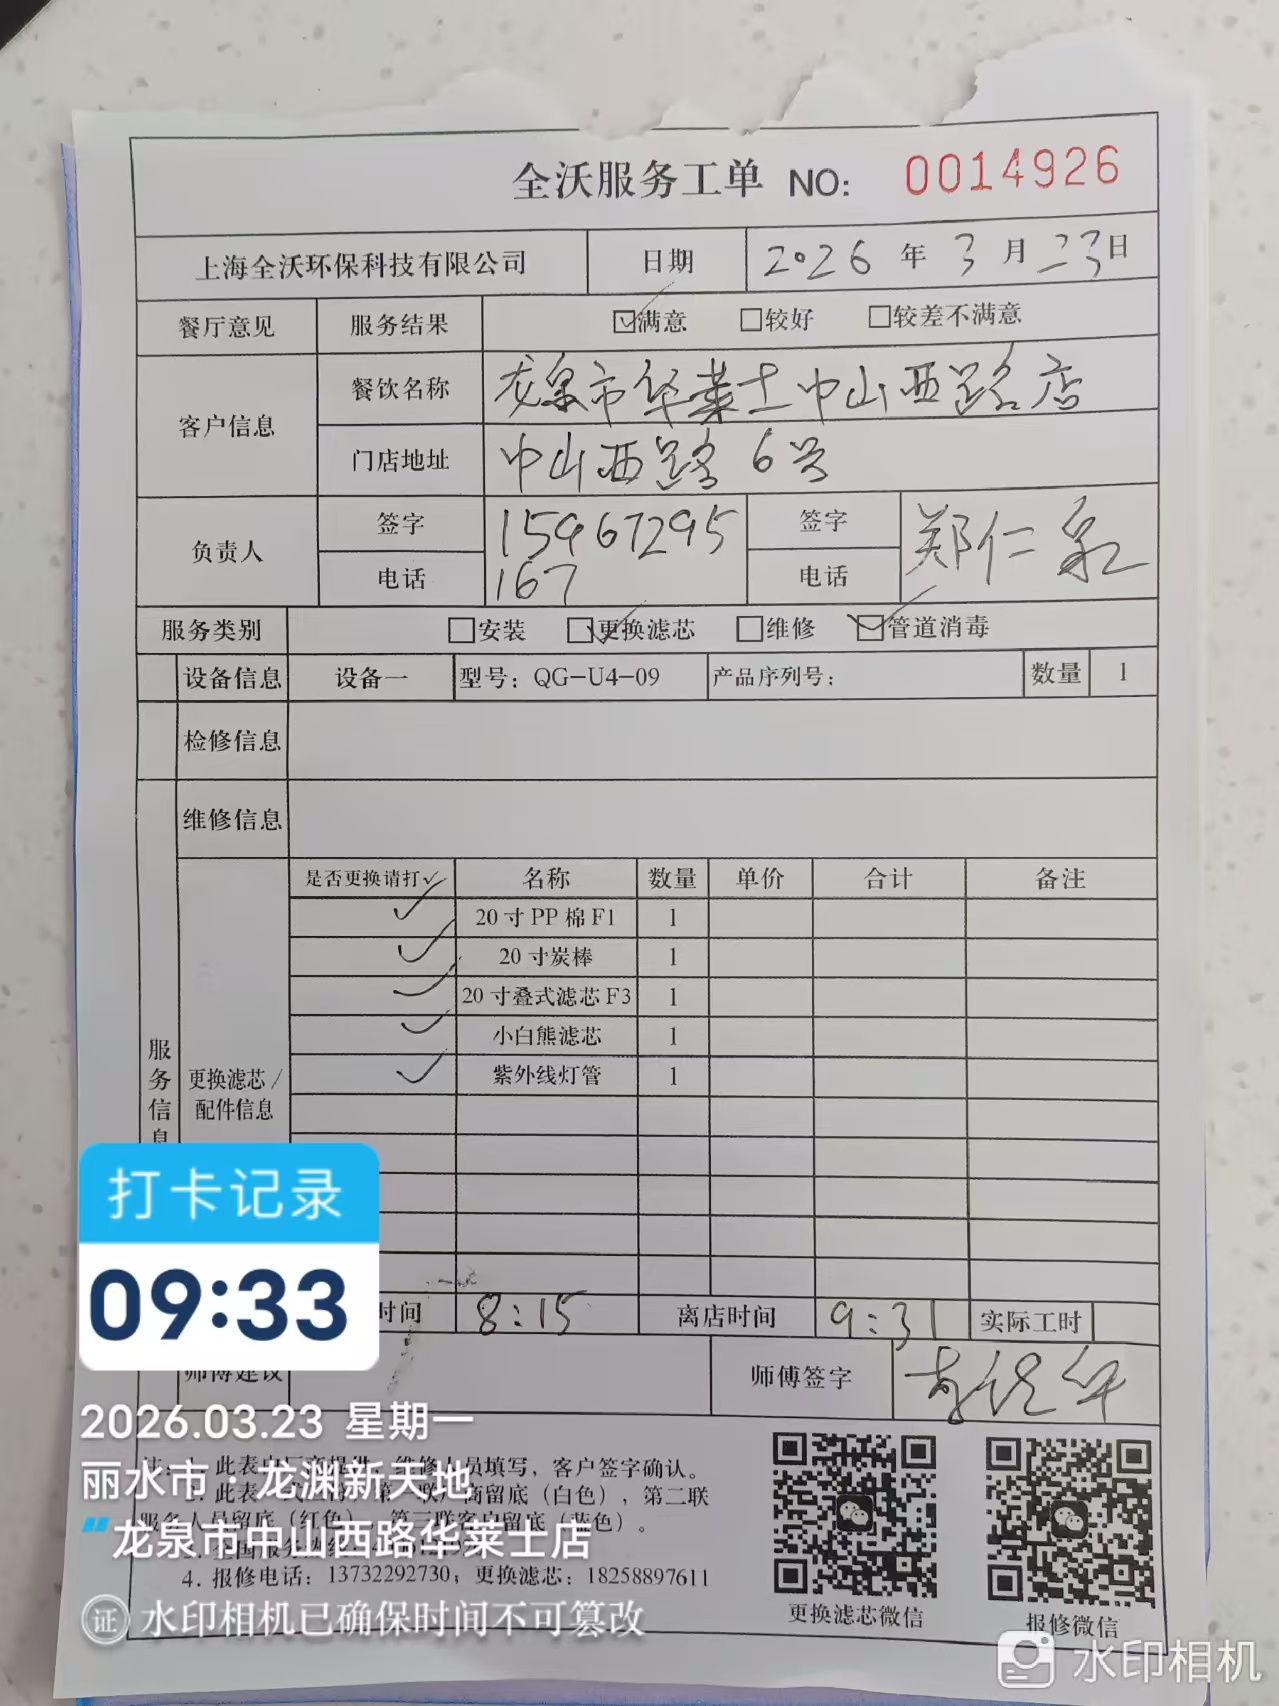 全沃服务工单 NO: 0014926
上海全沃环保科技有限公司 日期 2026 年 3 月 23 日
餐厅意见 服务结果 ☑满意 □较好 □较差不满意
客户信息 餐饮名称 龙泉市华莱士中山西路店
门店地址 中山西路 6号
负责人 签字 15967295 签字 郑仁泉
电话 167 电话
服务类别 □安装 ☑更换滤芯 □维修 ☑管道消毒
设备信息 设备一 型号: QG-U4-09 产品序列号: 数量 1
检修信息
维修信息
是否更换请打✓ 名称 数量 单价 合计 备注
✓ 20寸PP棉F1 1
✓ 20寸炭棒 1
✓ 20寸叠式滤芯F3 1
✓ 小白熊滤芯 1
✓ 紫外线灯管 1
服务信息
更换滤芯/
配件信息
打卡记录
09:33
时间 8:15 离店时间 9:31 实际工时
师傅建议 师傅签字
2026.03.23 星期一
丽水市·龙渊新天地
龙泉市中山西路华莱士店
水印相机已确保时间不可篡改
员填写，客户签字确认。
商留底（白色），第二联
服务人员留底（红色） 第三联客户留底（蓝色）。
4. 报修电话: 13732292730; 更换滤芯: 18258897611
更换滤芯微信 报修微信
证
水印相机